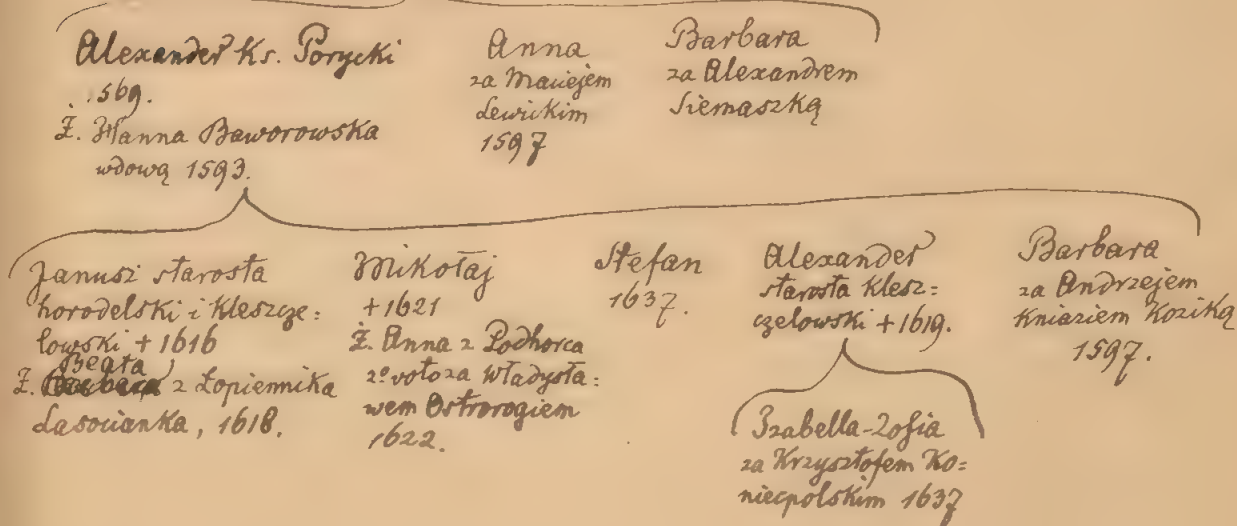 Alexander Ks. Porycki
1569.
Ż. Hanna Baworowska
wdową 1593.
Anna
za Maciejem
Lewickim
1597
Barbara
za Alexandrem
Siemaszką
Janusz starosta
horodelski i Kleszcze=
lowski +1616
Beata
Ż. z Łopiennika
Lasocianka, 1618.
Mikołaj
+1621
Ż. Anna z Podhorca
2º voto za Władysła=
wem Ostrorogiem
1622.
Stefan
1637.
Alexander
starosta Klesz=
czelowski +1619.
Barbara
za Andrzejem
Kniaziem Koziką
1597.
Izabella-Zofia
za Krzysztofem Ko=
niecpolskim 1637